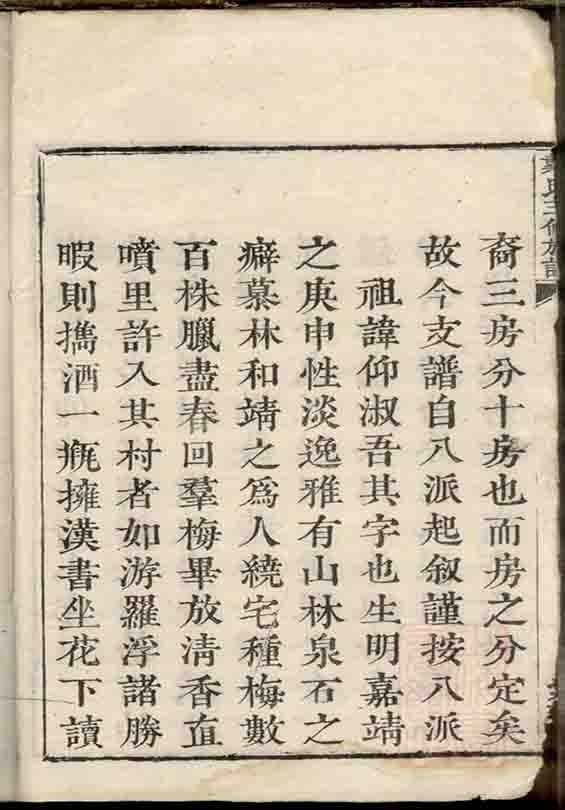 裔三房分十房也而房之分定矣
故今支譜自八派起叙謹按八派
祖諱仰淑吾其字也生明嘉靖
之庚申性淡逸雅有山林泉石之
癖慕林和靖之爲人繞宅種梅數
百株臘盡春回羣梅畢放清香直
噴里許入其村者如游羅浮諸勝
暇則擕酒一甁擁漢書坐花下讀